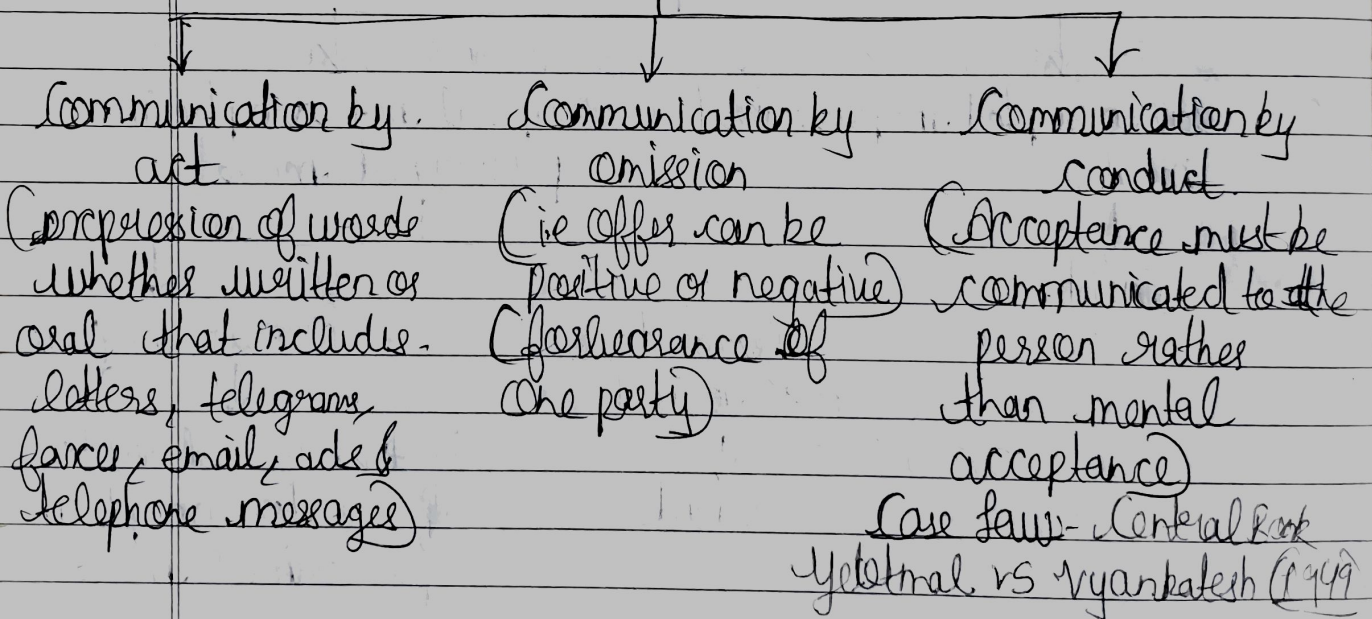 Communication by
act
(expression of words
whether written or
oral that includes
letters, telegrams,
faxes, email, ads &
telephone messages)
Communication by
omission
(i.e offer can be
positive or negative)
(forbearance of
one party)
Communication by
conduct.
(Acceptance must be
communicated to the
person rather
than mental
acceptance)
Case law:- Central Bank
Yeotmal vs Vyankatesh (1949